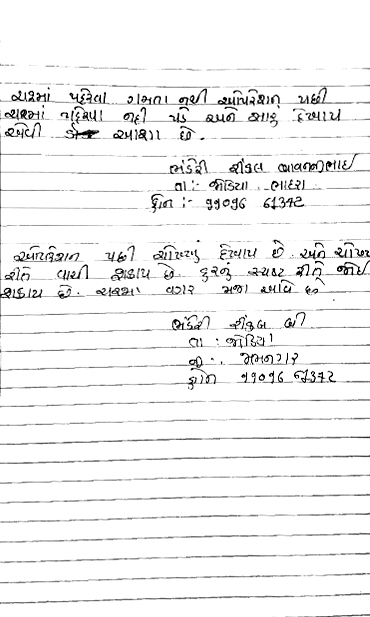 ચશ્માં પહેરવા ગમતા નથી ઓપરેશન પછી
ચશ્માં પહેરવા નહી પડે અને સારૂ દેખાય
એવી આશા છે.
ભંડેરી શીતલ બાવનજીભાઈ
તા:- જોડિયા ભાદરા
ફોન :- 99096 67342
ઓપરેશન પછી ચોખ્ખું દેખાય છે. અને ચોખ્ખ
રીતે વાંચી શકાય છે. દુરનું સ્પષ્ટ રીતે જોઈ
શકાય છે. ચશ્મા વગર મજા આવે છે
ભંડેરી શીતલ બી
તા :- જોડિયા
જી :- જામનગર
ફોન 99096 67342